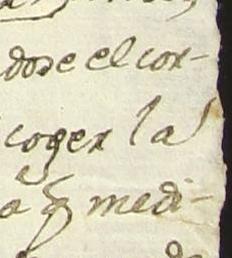 dose el cor-
coger la
a q medi-